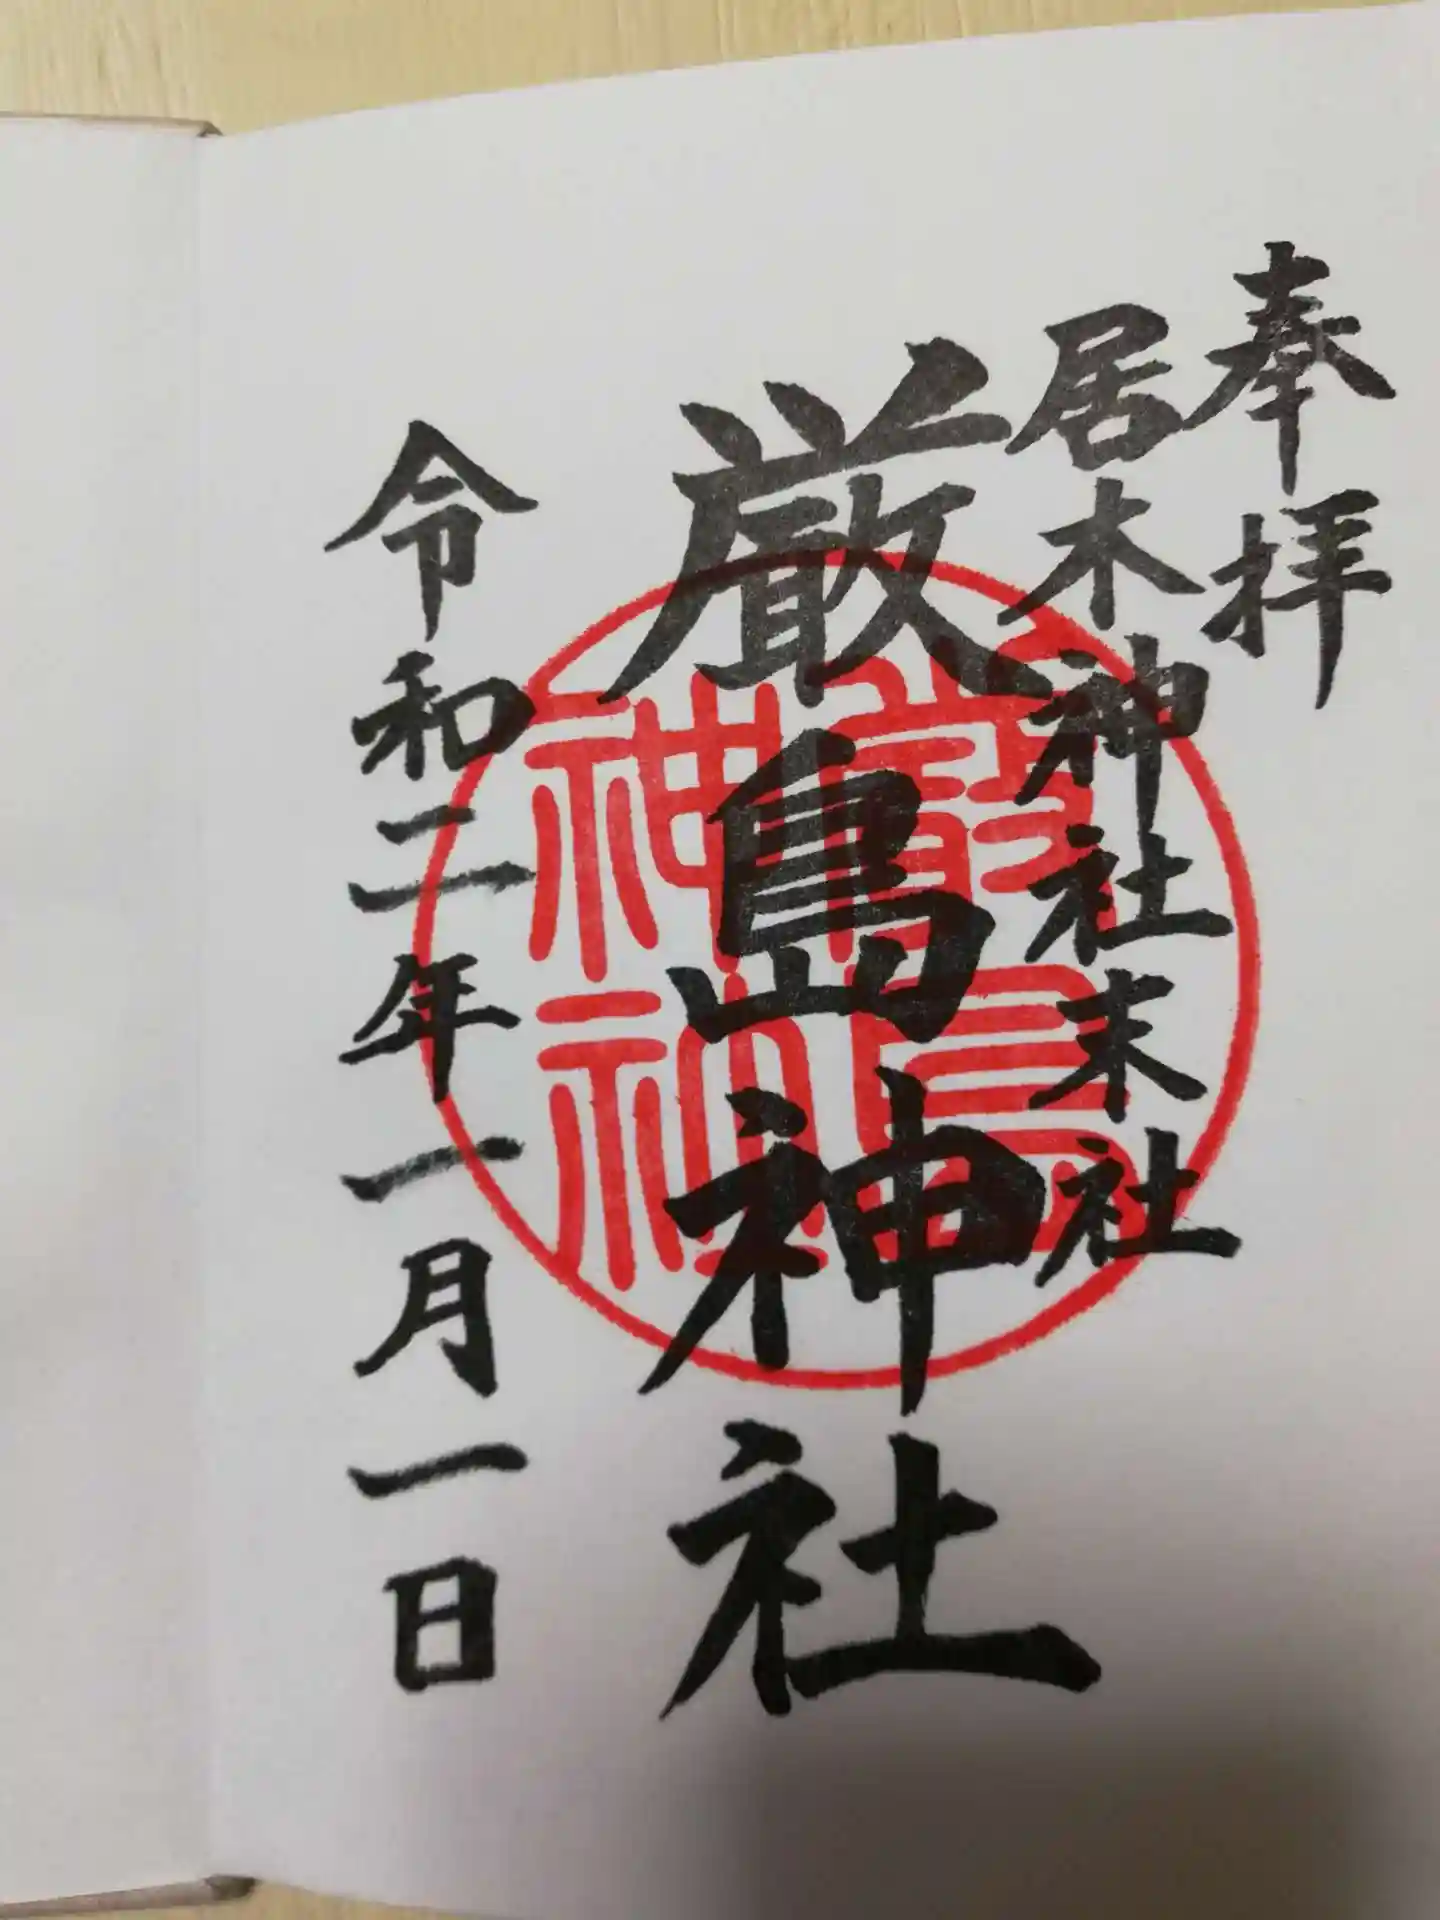 奉拝
居木神社末社
厳島神社
令和二年一月一日